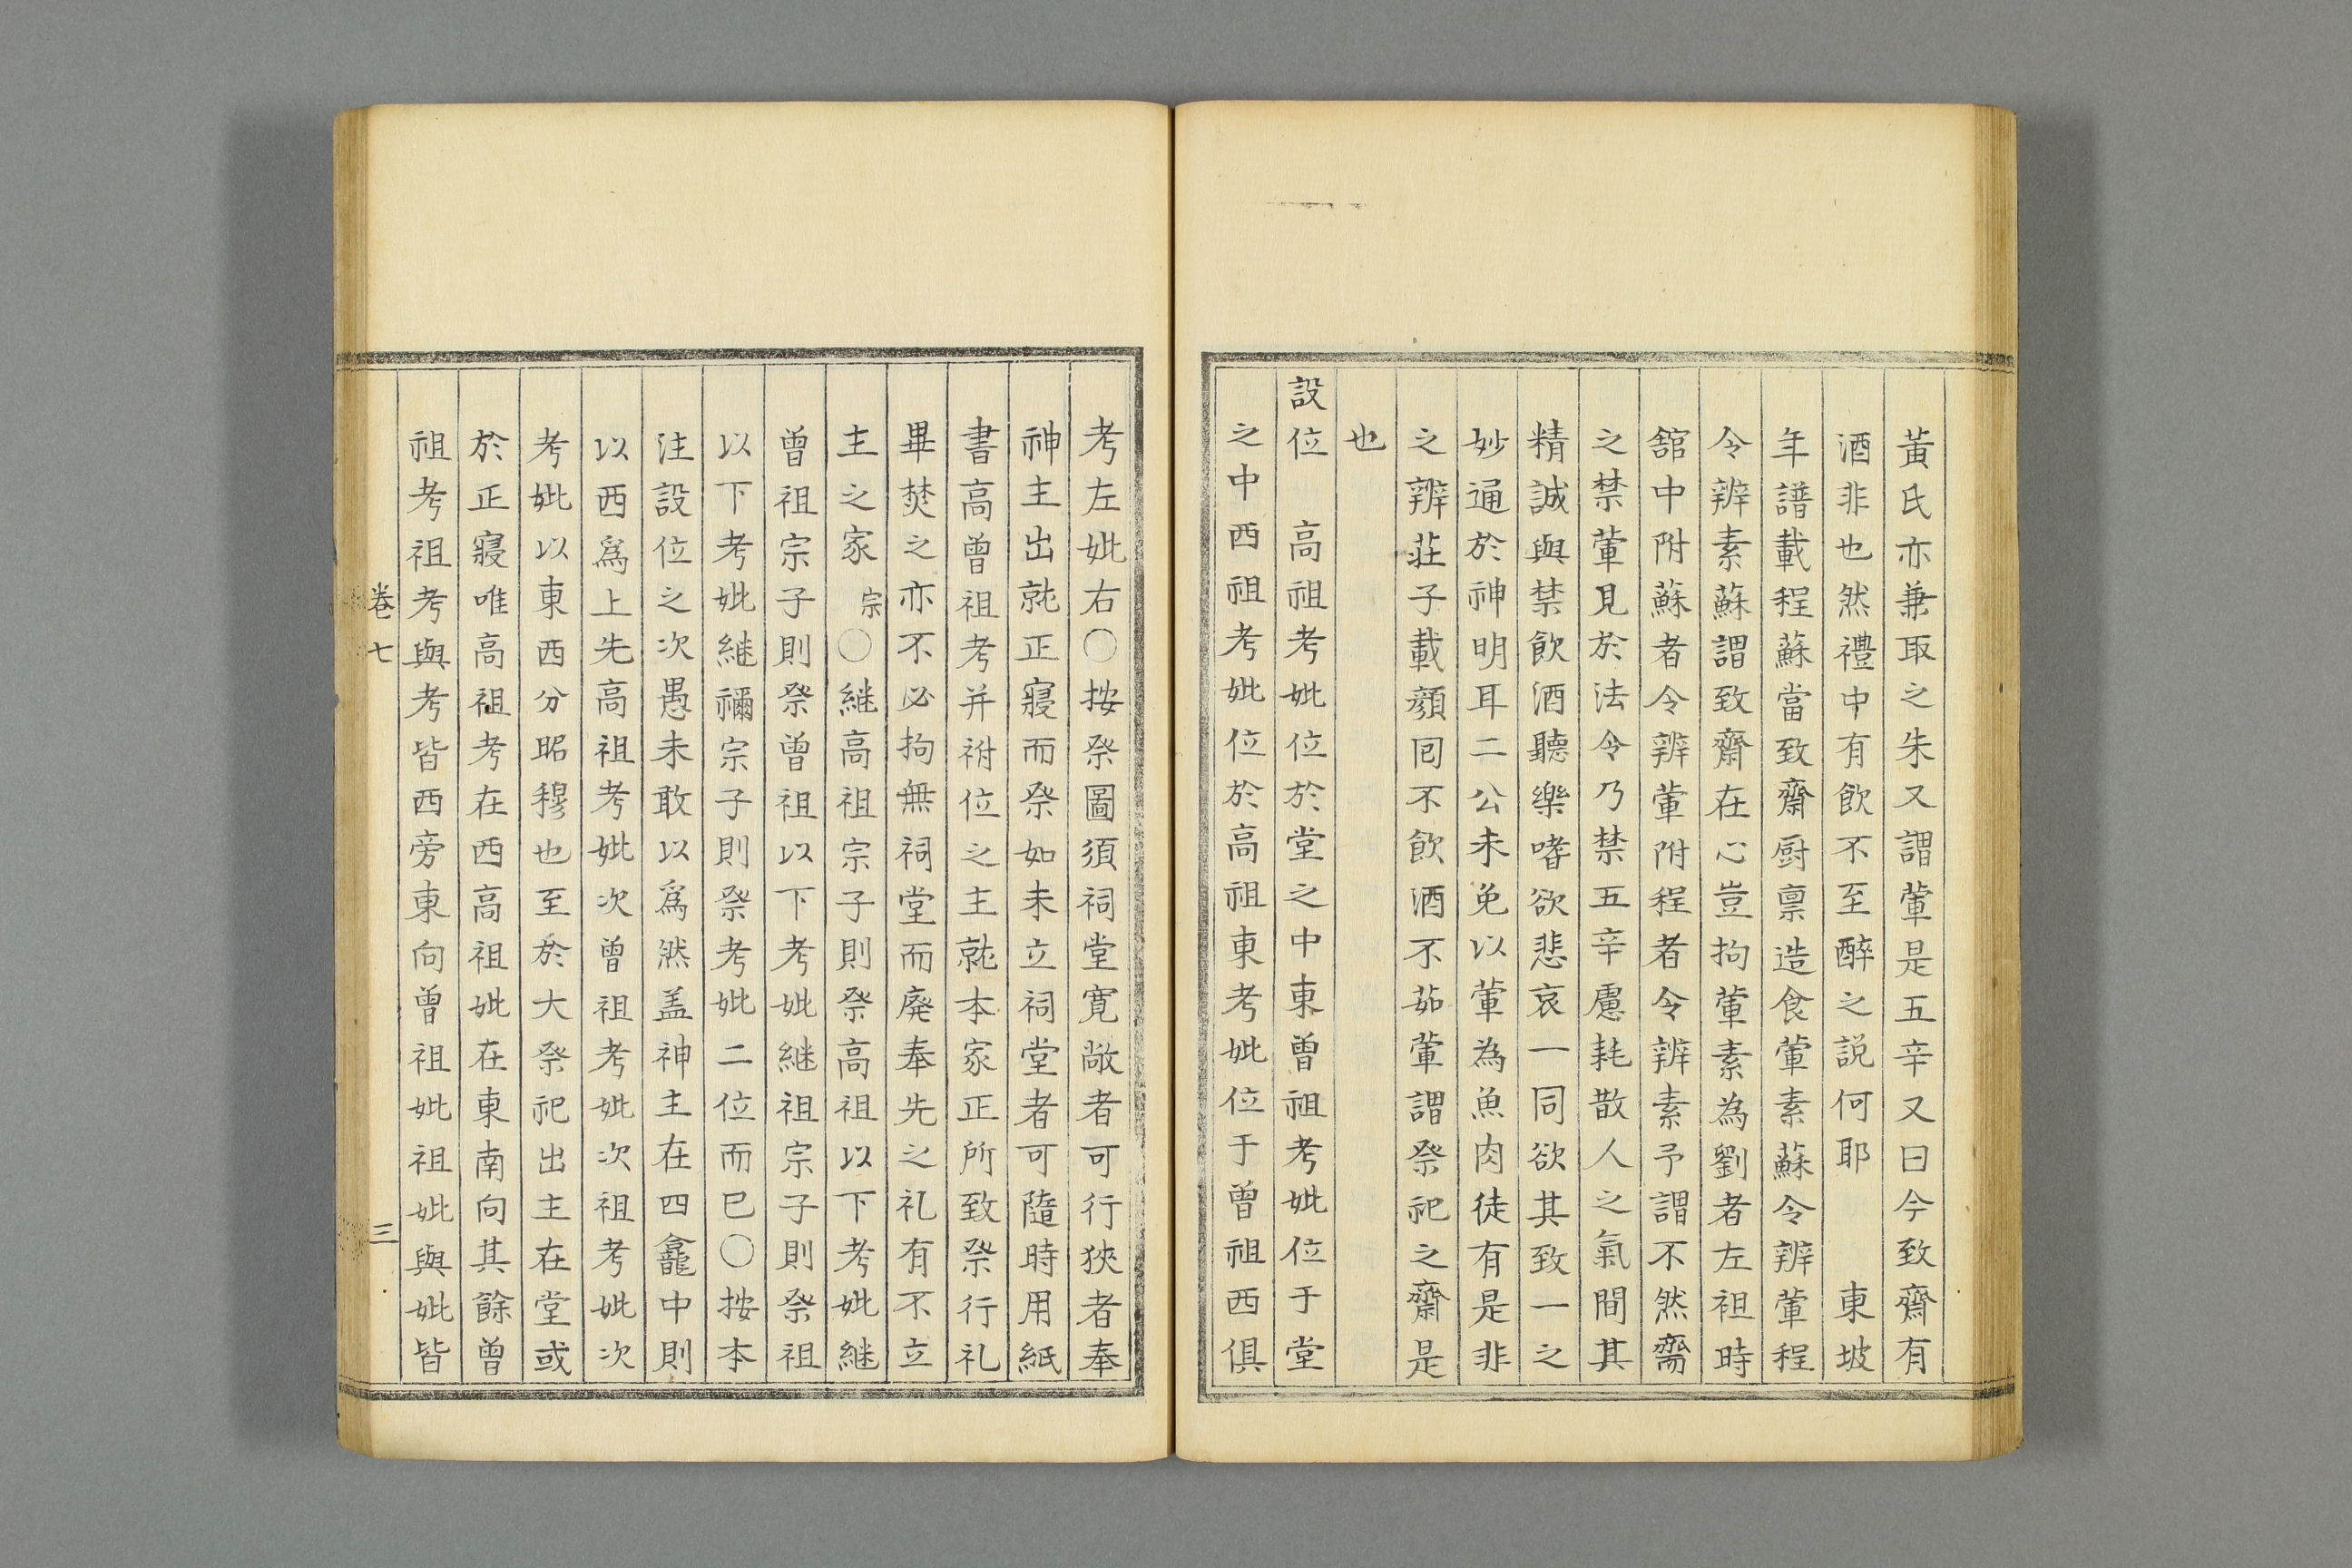 黃氏亦兼取之朱又謂葷是五辛又曰今致齋有
酒非也然禮中有飲不至醉之説何耶　東坡
年譜載程蘇當致齋厨禀造食葷素蘇令辨葷程
令辨素蘇謂致齋在心豈拘葷素為劉者左袒時
舘中附蘇者令辨葷附程者令辨素予謂不然齋
之禁葷見於法令乃禁五辛慮耗散人之氣間其
精誠與禁飲酒聽樂嗜欲悲哀一同欲其致一之
妙通於神明耳二公未免以葷為魚肉徒有是非
之辨莊子載顔囘不飲酒不茹葷謂祭祀之齋是
也
設位　高祖考妣位於堂之中東曾祖考妣位于堂
之中西祖考妣位於高祖東考妣位于曾祖西俱
考左妣右〇按祭圖須祠堂寛敞者可行狹者奉
神主出就正寢而祭如未立祠堂者可隨時用紙
書高曾祖考并祔位之主就本家正所致祭行礼
畢焚之亦不必拘無祠堂而廢奉先之礼有不立
主之家宗〇継高祖宗子則祭高祖以下考妣継
曾祖宗子則祭曾祖以下考妣継祖宗子則祭祖
以下考妣継禰宗子則祭考妣二位而已〇按本
注設位之次愚未敢以爲然盖神主在四龕中則
以西爲上先高祖考妣次曾祖考妣次祖考妣次
考妣以東西分昭穆也至於大祭祀出主在堂或
於正寢唯高祖考在西高祖妣在東南向其餘曾
祖考祖考與考皆西旁東向曾祖妣祖妣與妣皆
卷七
三